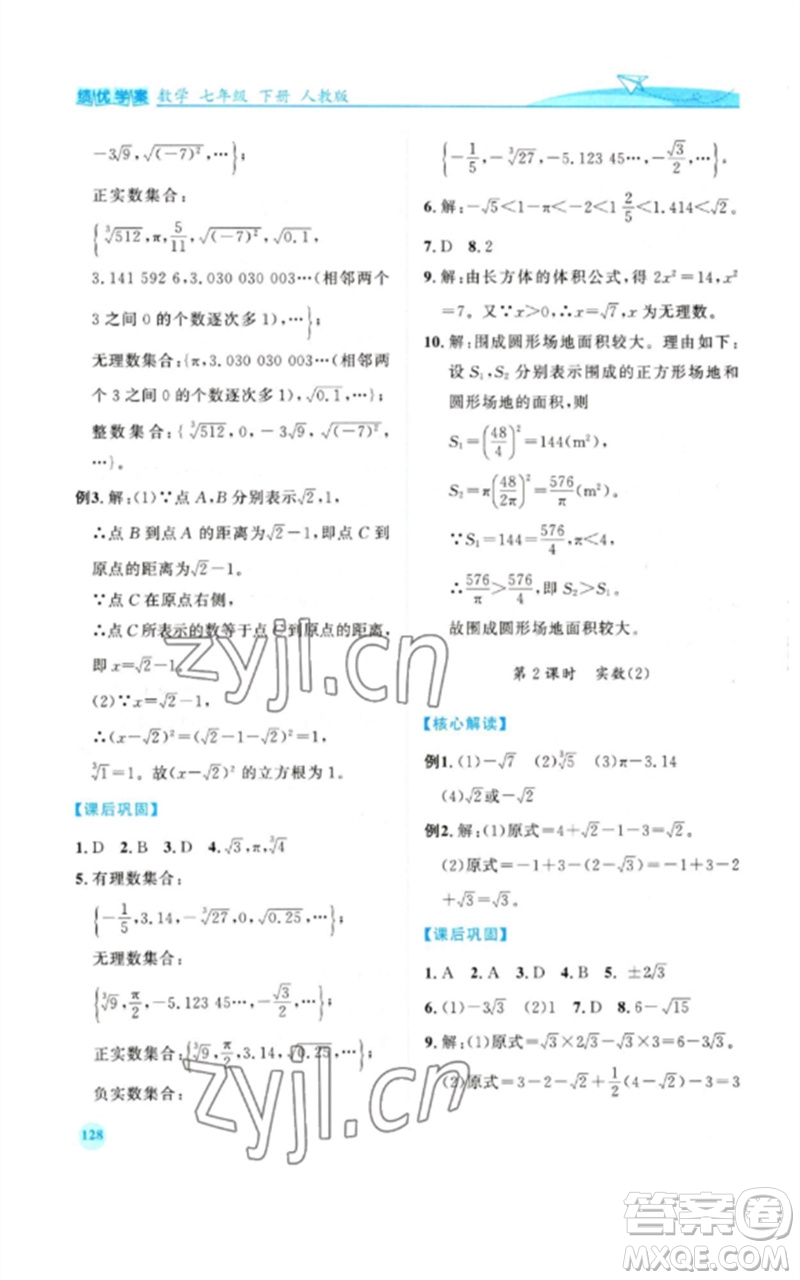 绩优学案 数学 七年级 下册 人教版
-3√9,√(-7)²,…};
正实数集合:
{³√512,π,5/11,√(-7)²,√0.1,
3.141 592 6,3.030 030 003…(相邻两个
3之间0的个数逐次多1),…};
无理数集合:{π,3.030 030 003…(相邻两
个3之间0的个数逐次多1),…};
整数集合:{³√512,0,-3√9,√(-7)²,
…}。
例3.解:(1)∵点A,B分别表示√2,1,
∴点B到点A的距离为√2-1,即点C到
原点的距离为√2-1。
∵点C在原点右侧,
∴点C所表示的数等于点C到原点的距离,
即x=√2-1。
(2)∵x=√2-1,
∴(x-√2)²=(√2-1-√2)²=1,
³√1=1。故(x-√2)²的立方根为1。
【课后巩固】
1.D 2.B 3.D 4.√3,π,³√4
5.有理数集合:
{-1/5,3.14,-³√27,0,√0.25,…};
无理数集合:
{³√9,π/2,-5.123 45…,-√3/2,…};
正实数集合:{³√9,π/2,3.14,√0.25,…};
负实数集合:
128
{-1/5,-³√27,-5.123 45…,-√3/2,…}。
6.解:-√5<1-π<-2<1 2/5<1.414<√2。
7.D 8.2
9.解:由长方体的体积公式,得2x²=14,x²
=7。又∵x>0,∴x=√7,x为无理数。
10.解:围成圆形场地面积较大。理由如下:
设S₁,S₂分别表示围成的正方形场地和
圆形场地的面积,则
S₁=(48/4)²=144(m²)
S₂=π(48/2π)²=576/π(m²)
∵S₁=144=576/4,π<4,
∴576/π>576/4,即S₂>S₁。
故围成圆形场地面积较大。
第2课时 实数(2)
【核心解读】
例1.(1)-√7 (2)³√5 (3)π-3.14
(4)√2或-√2
例2.解:(1)原式=4+√2-1-3=√2。
(2)原式=-1+3-(2-√3)=-1+3-2
+√3=√3。
【课后巩固】
1.A 2.A 3.D 4.B 5.±2√3
6.(1)-3√3 (2)1 7.D 8.6-√15
9.解:(1)原式=√3×2√3-√3×√3=6-3=3
(2)原式=3-2-√2+1/2(4+2√2)=3
zyjl.cn
zyjl.cn
答案卷
MXQE.COM